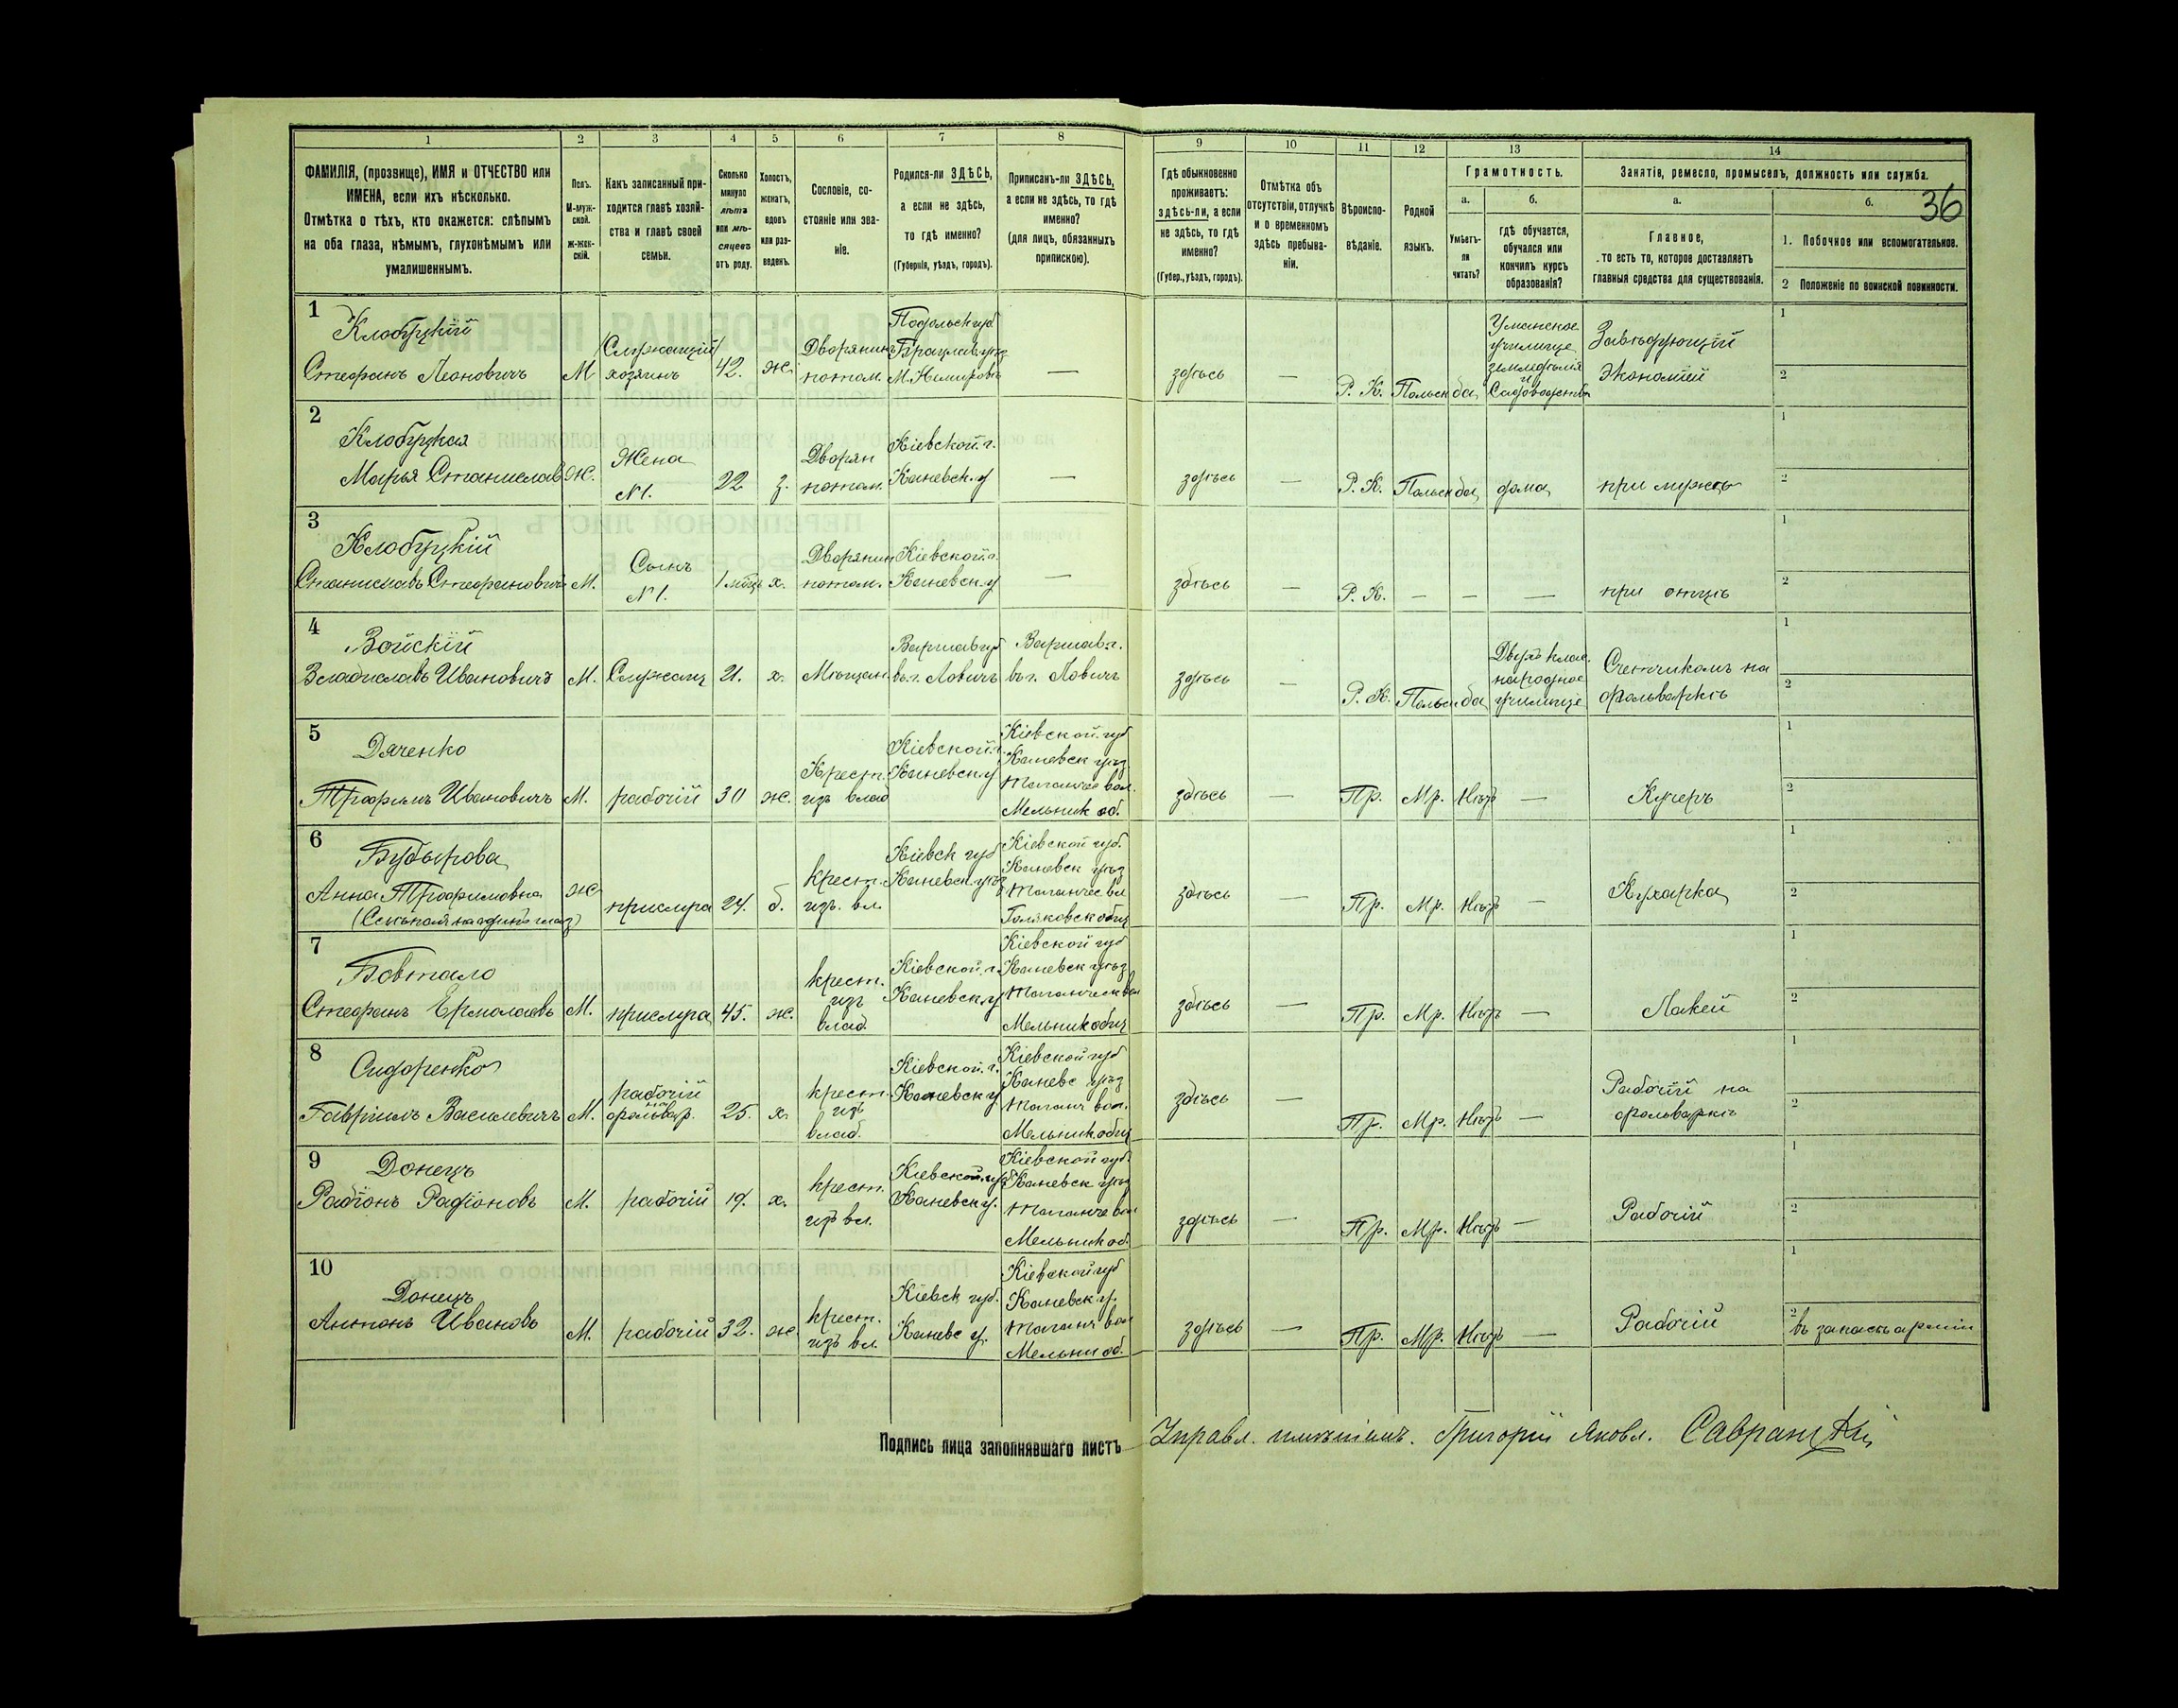 1 2 3 4 5 6 7 8 9 10 11 12 13 14
ФАМИЛІЯ, (прозвище), ИМЯ и ОТЧЕСТВО или
ИМЕНА, если ихъ нѣсколько.
Отмѣтка о тѣхъ, кто окажется: слѣпымъ
на оба глаза, нѣмымъ, глухонѣмымъ или
умалишеннымъ.
Полъ.
М-муж-
ской.
ж-жен-
скій.
Какъ записанный при-
ходится главѣ хозяй-
ства и главѣ своей
семьи.
Сколько
минуло
лѣтъ
или мѣ-
сяцевъ
отъ роду.
Холостъ,
женатъ,
вдовъ
или раз-
веденъ.
Сословіе, со-
стояніе или зва-
ніе.
Родился-ли ЗДѢСЬ,
а если не здѣсь,
то гдѣ именно?
(Губернія, уѣздъ, городъ).
Приписанъ-ли ЗДѢСЬ,
а если не здѣсь, то гдѣ
именно?
(для лицъ, обязанныхъ
припискою).
Гдѣ обыкновенно
проживаетъ:
здѣсь-ли, а если
не здѣсь, то гдѣ
именно?
(Губер., уѣздъ, городъ).
Отмѣтка объ
отсутствіи, отлучкѣ
и о временномъ
здѣсь пребыва-
ніи.
Вѣроиспо-
вѣданіе.
Родной
языкъ.
Грамотность.
а.
Умѣетъ-
ли
читать?
б.
гдѣ обучается,
обучался или
кончилъ курсъ
образованія?
Занятіе, ремесло, промыселъ, должность или служба.
а.
Главное,
то есть то, которое доставляетъ
главныя средства для существованія.
б.
36
1. Побочное или вспомогательное.
2 Положеніе по воинской повинности.
1
Клобуцкій
Стефанъ Леоновичъ
М
(Служащій)
хозяинъ
42.
ж.
Дворянинъ
потом.
Подольск губ
Брацлав. уѣз
М. Немировъ
—
здѣсь
—
Р. К.
Польск
да
Уманское
училище
земледѣлія
и
Садоводства
Завѣдующій
Экономіей
1
2
2
Клобуцкая
Марья Станислав
Ж.
Жена
№1.
22
з.
Дворян
потом.
Кіевской. г.
Каневск. у
—
здѣсь
—
Р. К.
Польск
да
дома
при мужѣ
1
2
3
Клобуцкій
Станиславъ Стефановичъ
М.
Сынъ
№1.
1 мѣц
х.
Дворянин
потом.
Кіевской. г.
Каневск. у
—
здѣсь
—
Р. К.
—
—
—
при отцѣ
1
2
4
Войскій
Владиславъ Ивановичъ
М.
Служащ
21.
х.
Мѣщан.
Варшав губ
въ г. Ловичъ
Варшав. г.
въ г. Ловичъ
здѣсь
—
Р. К.
Польск
да
Двухъ клас.
народное
училище
Счетчикомъ на
фольваркѣ
1
2
5
Дяченко
Трофимъ Ивановичъ
М.
рабочій
30
ж.
Крест.
изъ влад
Кіевской. г.
Каневск у
Кіевской. губ
Каневск уѣз.
Таганчее вол.
Мельник об.
здѣсь
—
Пр.
Мр.
Нѣтъ
—
Кучеръ
1
2
6
Бубырова
Анна Трофимовна
ж
прислуга
24.
б.
крест.
изъ. вл.
Кіевск губ
Каневск. уѣз
Кіевской губ.
Каневск уѣз
Таганчее вл
здѣсь
—
Пр.
Мр.
Нѣтъ
—
Кухарка
1
2
7
Бовтало
Стефанъ Ермолаевъ
М.
прислуга
45.
ж.
крест.
изъ
влад.
Кіевской. г.
Каневск. у
Кіевской губ
Каневск уѣз
Таганческ вол
Мельник общ
здѣсь
—
Пр.
Мр.
Нѣтъ
—
Лакей
1
2
8
Сидоренко
Гавріилъ Василевичъ
М.
рабочій
на
фольвар.
25.
х.
крест.
изъ
влад.
Кіевской. г.
Каневск у
Кіевской губ
Каневс уѣз
Таганч вол.
Мельник. общ
здѣсь
—
Пр.
Мр.
Нѣтъ
—
Рабочій на
фольваркѣ
1
2
9
Донецъ
Радіонъ Радіоновъ
М.
рабочій
19.
х.
крест.
изъ вл.
Кіевской. губ
Каневск у.
Кіевской губ.
Каневск уѣз
Таганче вол
Мельник об.
здѣсь
—
Пр.
Мр.
Нѣтъ
—
Рабочій
1
2
10
Донецъ
Антонъ Ивановъ
М.
рабочій
32.
ж.
крест.
изъ вл.
Кіевск губ.
Каневс у.
Кіевской губ
Каневск. у.
Таганч вол
Мельни об.
здѣсь
—
Пр.
Мр.
Нѣтъ
—
Рабочій
1
2
въ запасѣ арміи
Подпись лица заполнявшаго листъ Управл. имѣніемъ. Григорій Яковл. Савранскій